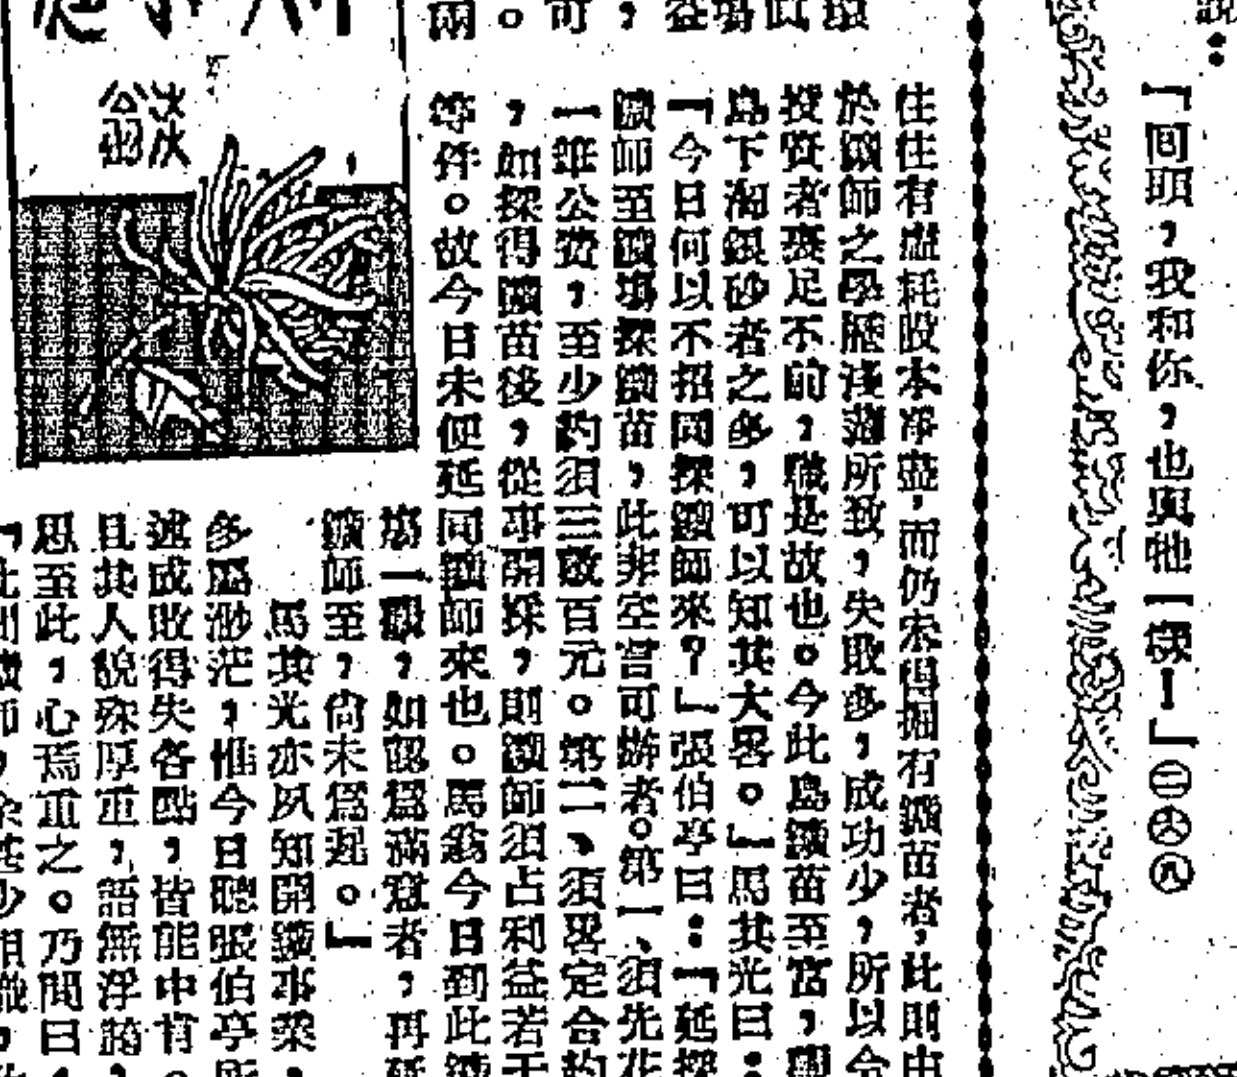 說：
「間頭，我和你，也與牠一樣！」㊁㊅㊇
往往有虛耗股本淨盡，而仍未得掘有鑛苗者，此則由
於鑛師之學歷淺薄所致，失敗多，成功少，所以令
投資者裹足不前，職是故也。今此島鑛苗至富，觀
島下淘銀砂者之多，可以知其大畧。」馬其光曰：
「今日何以不招同探鑛師來？」張伯亭曰：「延探
鑛師至鑛塲探鑛苗，此非空言可辦者。第一、須先花
一筆公費，至少約須三數百元。第二、須畧定合約
，如探得鑛苗後，從事開採，則鑛師須占利益若干
等件。故今日未便延同鑛師來也。馬翁今日到此鑛
塲一觀，如認爲滿意者，再延
鑛師至，尙未爲遲。」
馬其光亦夙知開鑛事業，
多屬渺茫，惟今日聽張伯亭所
述成敗得失各點，皆能中肯。
且其人貌殊厚重，語無浮誇，
思至此，心焉重之。乃問曰：
淡翁